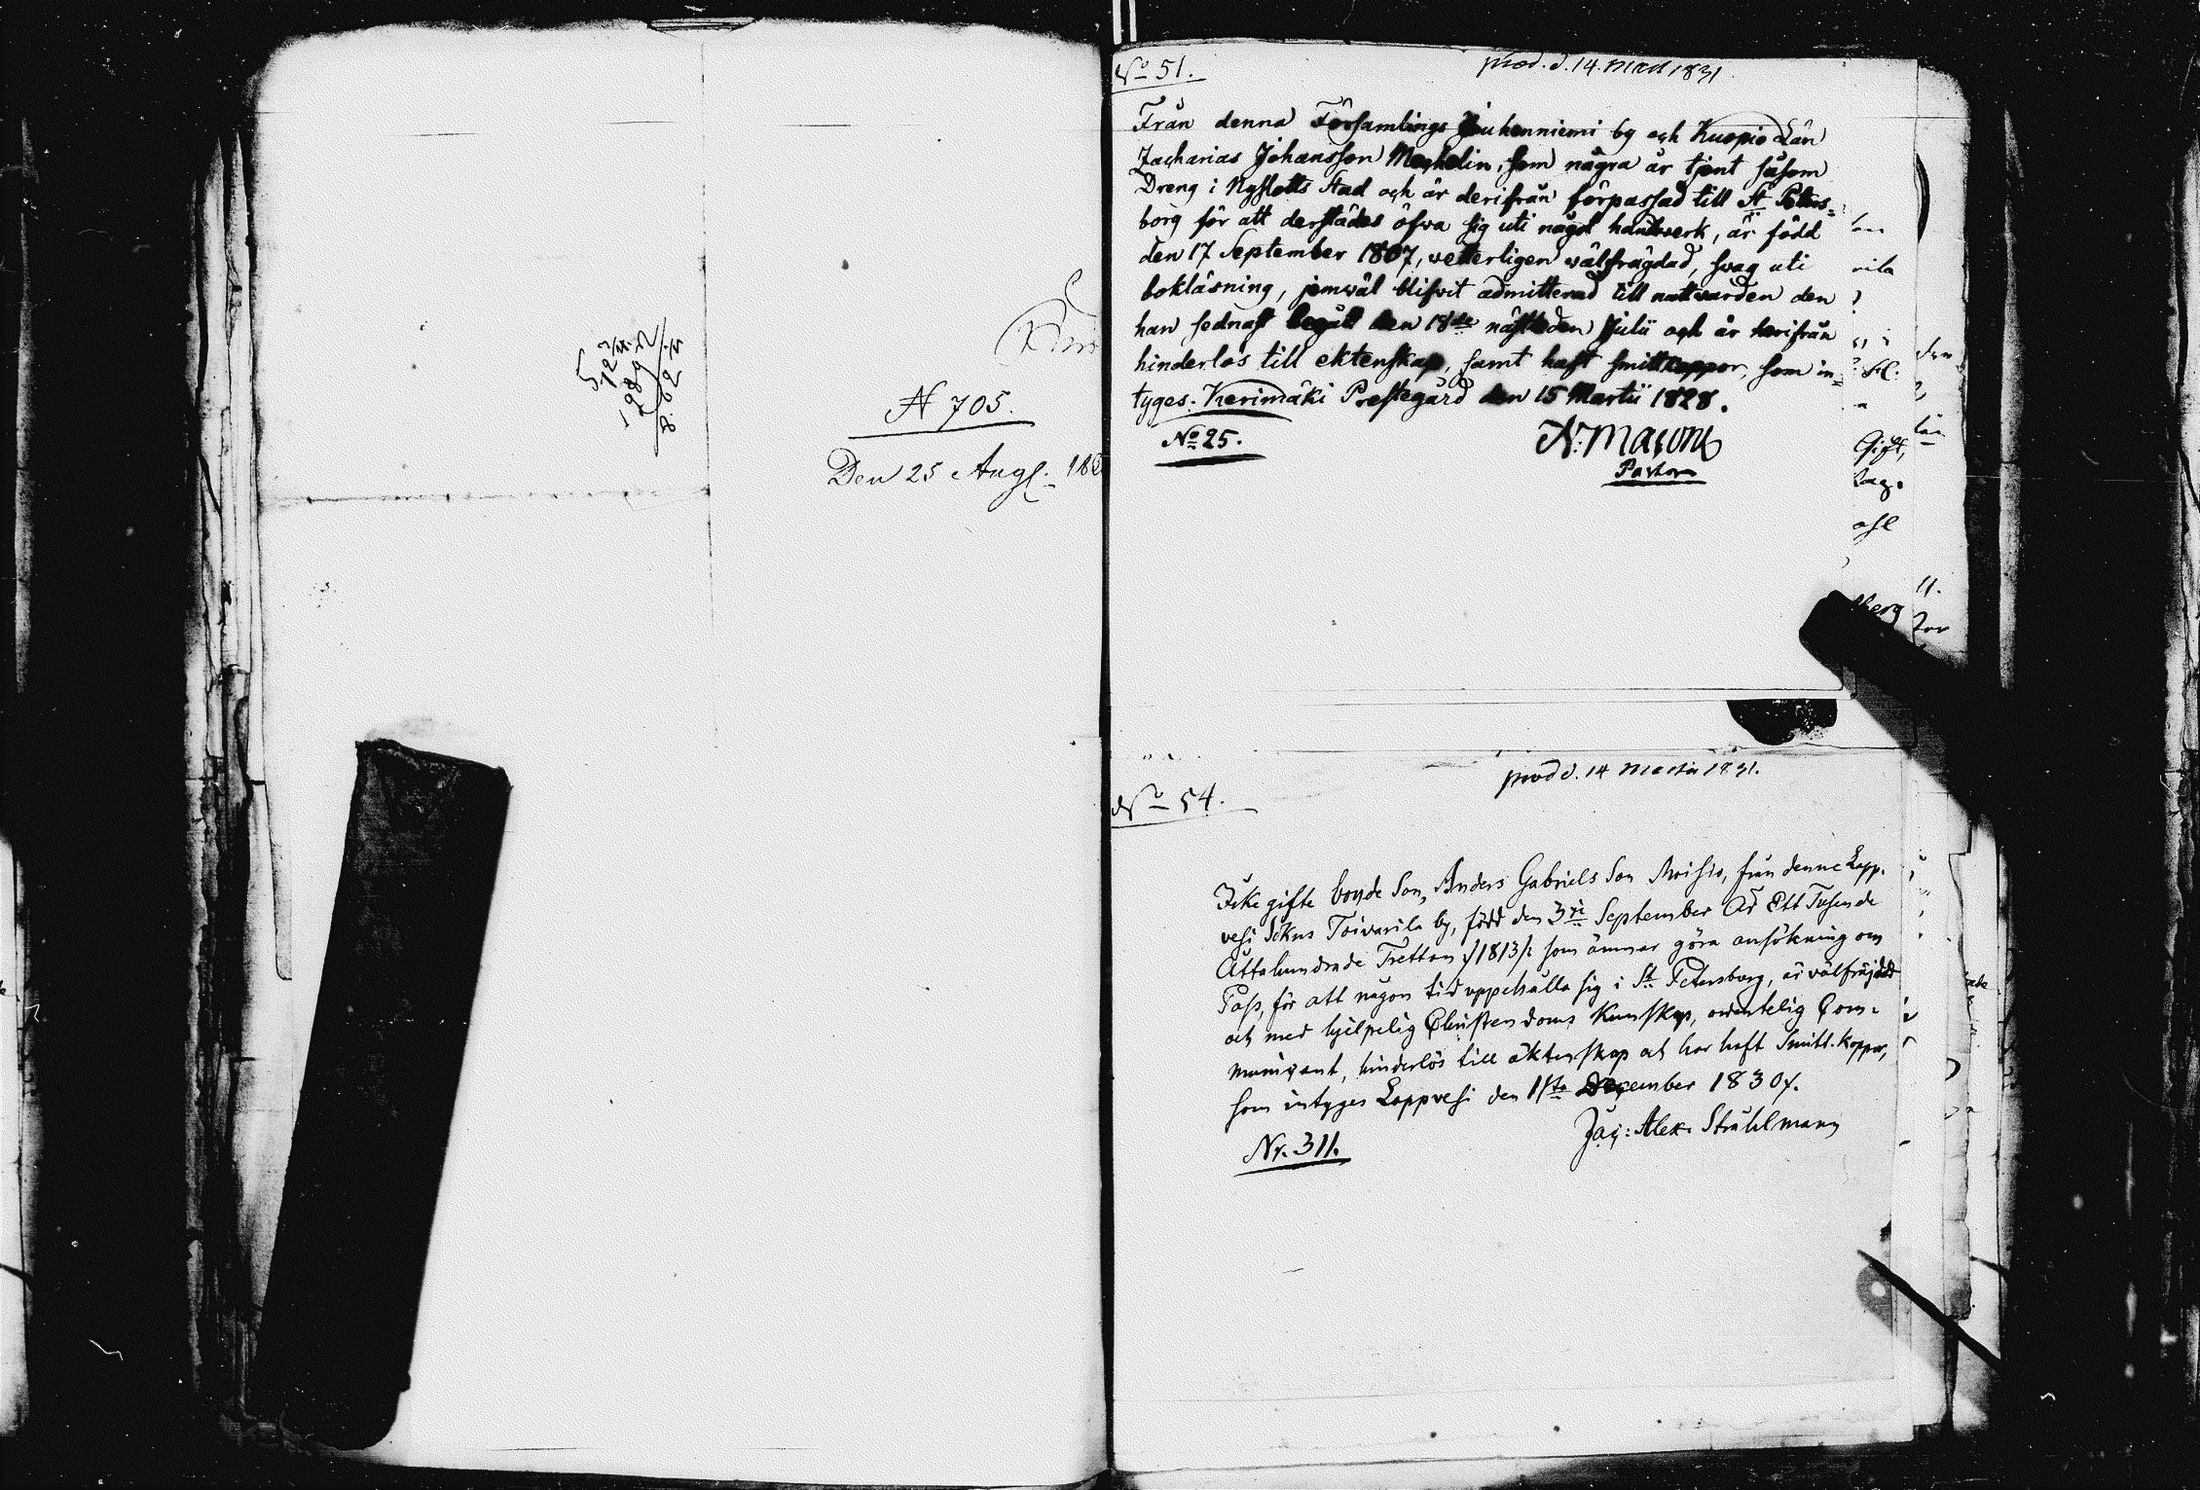 N 705.
Den 25 Augl. 18
No 51.
prod. d. 14. Mars 1831
Från denna Församlings Juhanniemi by och Kuopio Län
Zacharias Johansson Mechelin, som några år tjent såsom
Dreng i Nyslotts Stad och är derifrån förpassad till St Peters=
borg för att derstädes öfva sig uti något handtverk, är född
den 17 September 1807, vetterligen välfrägdad, svag uti
bokläsning, jemväl blifvit admitterad till nattvarden den
han sednast begått den 18de nästleden Julii och är herifrån
hinderlös till ektenskap, samt haft smittkoppor, som in=
tyges. Kerimäki Prestegård den 15 Martii 1828.
No 25.
N: Maconi
Pastor
Gift,
berg
No 54.
prod d. 14 Martii 1831.
Icke gifte bonde Son, Anders Gabriels Son Moisio, från denne Lapp-
vesi Sokns Toivarila by, född den 3die September År Ett Tusende
Åttahundrade Tretton /1813/: som ämnar göra ansökning om
Pass, för att någon tid uppehålla sig i St Petersborg, är välfräjdad
och med hjelpelig Christendoms Kunskap, ordentelig Com=
municant, hinderlös till äktenskap och har haft Smitt-koppor,
som intyges Lappvesi den 1sta December 1830.
Jac: Alex. Stråhlmann
Nr. 311.